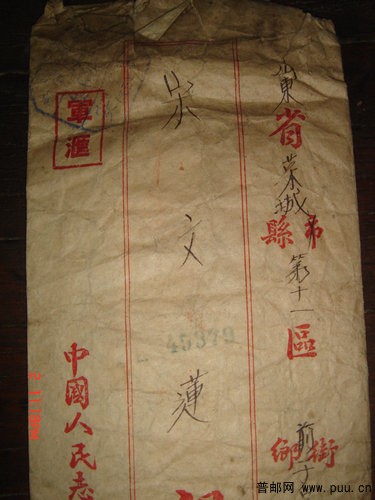 山東省荣城縣市第十一區前十鄉街
文蓮
軍滙
中國人民志
普邮网 www.puu.cn